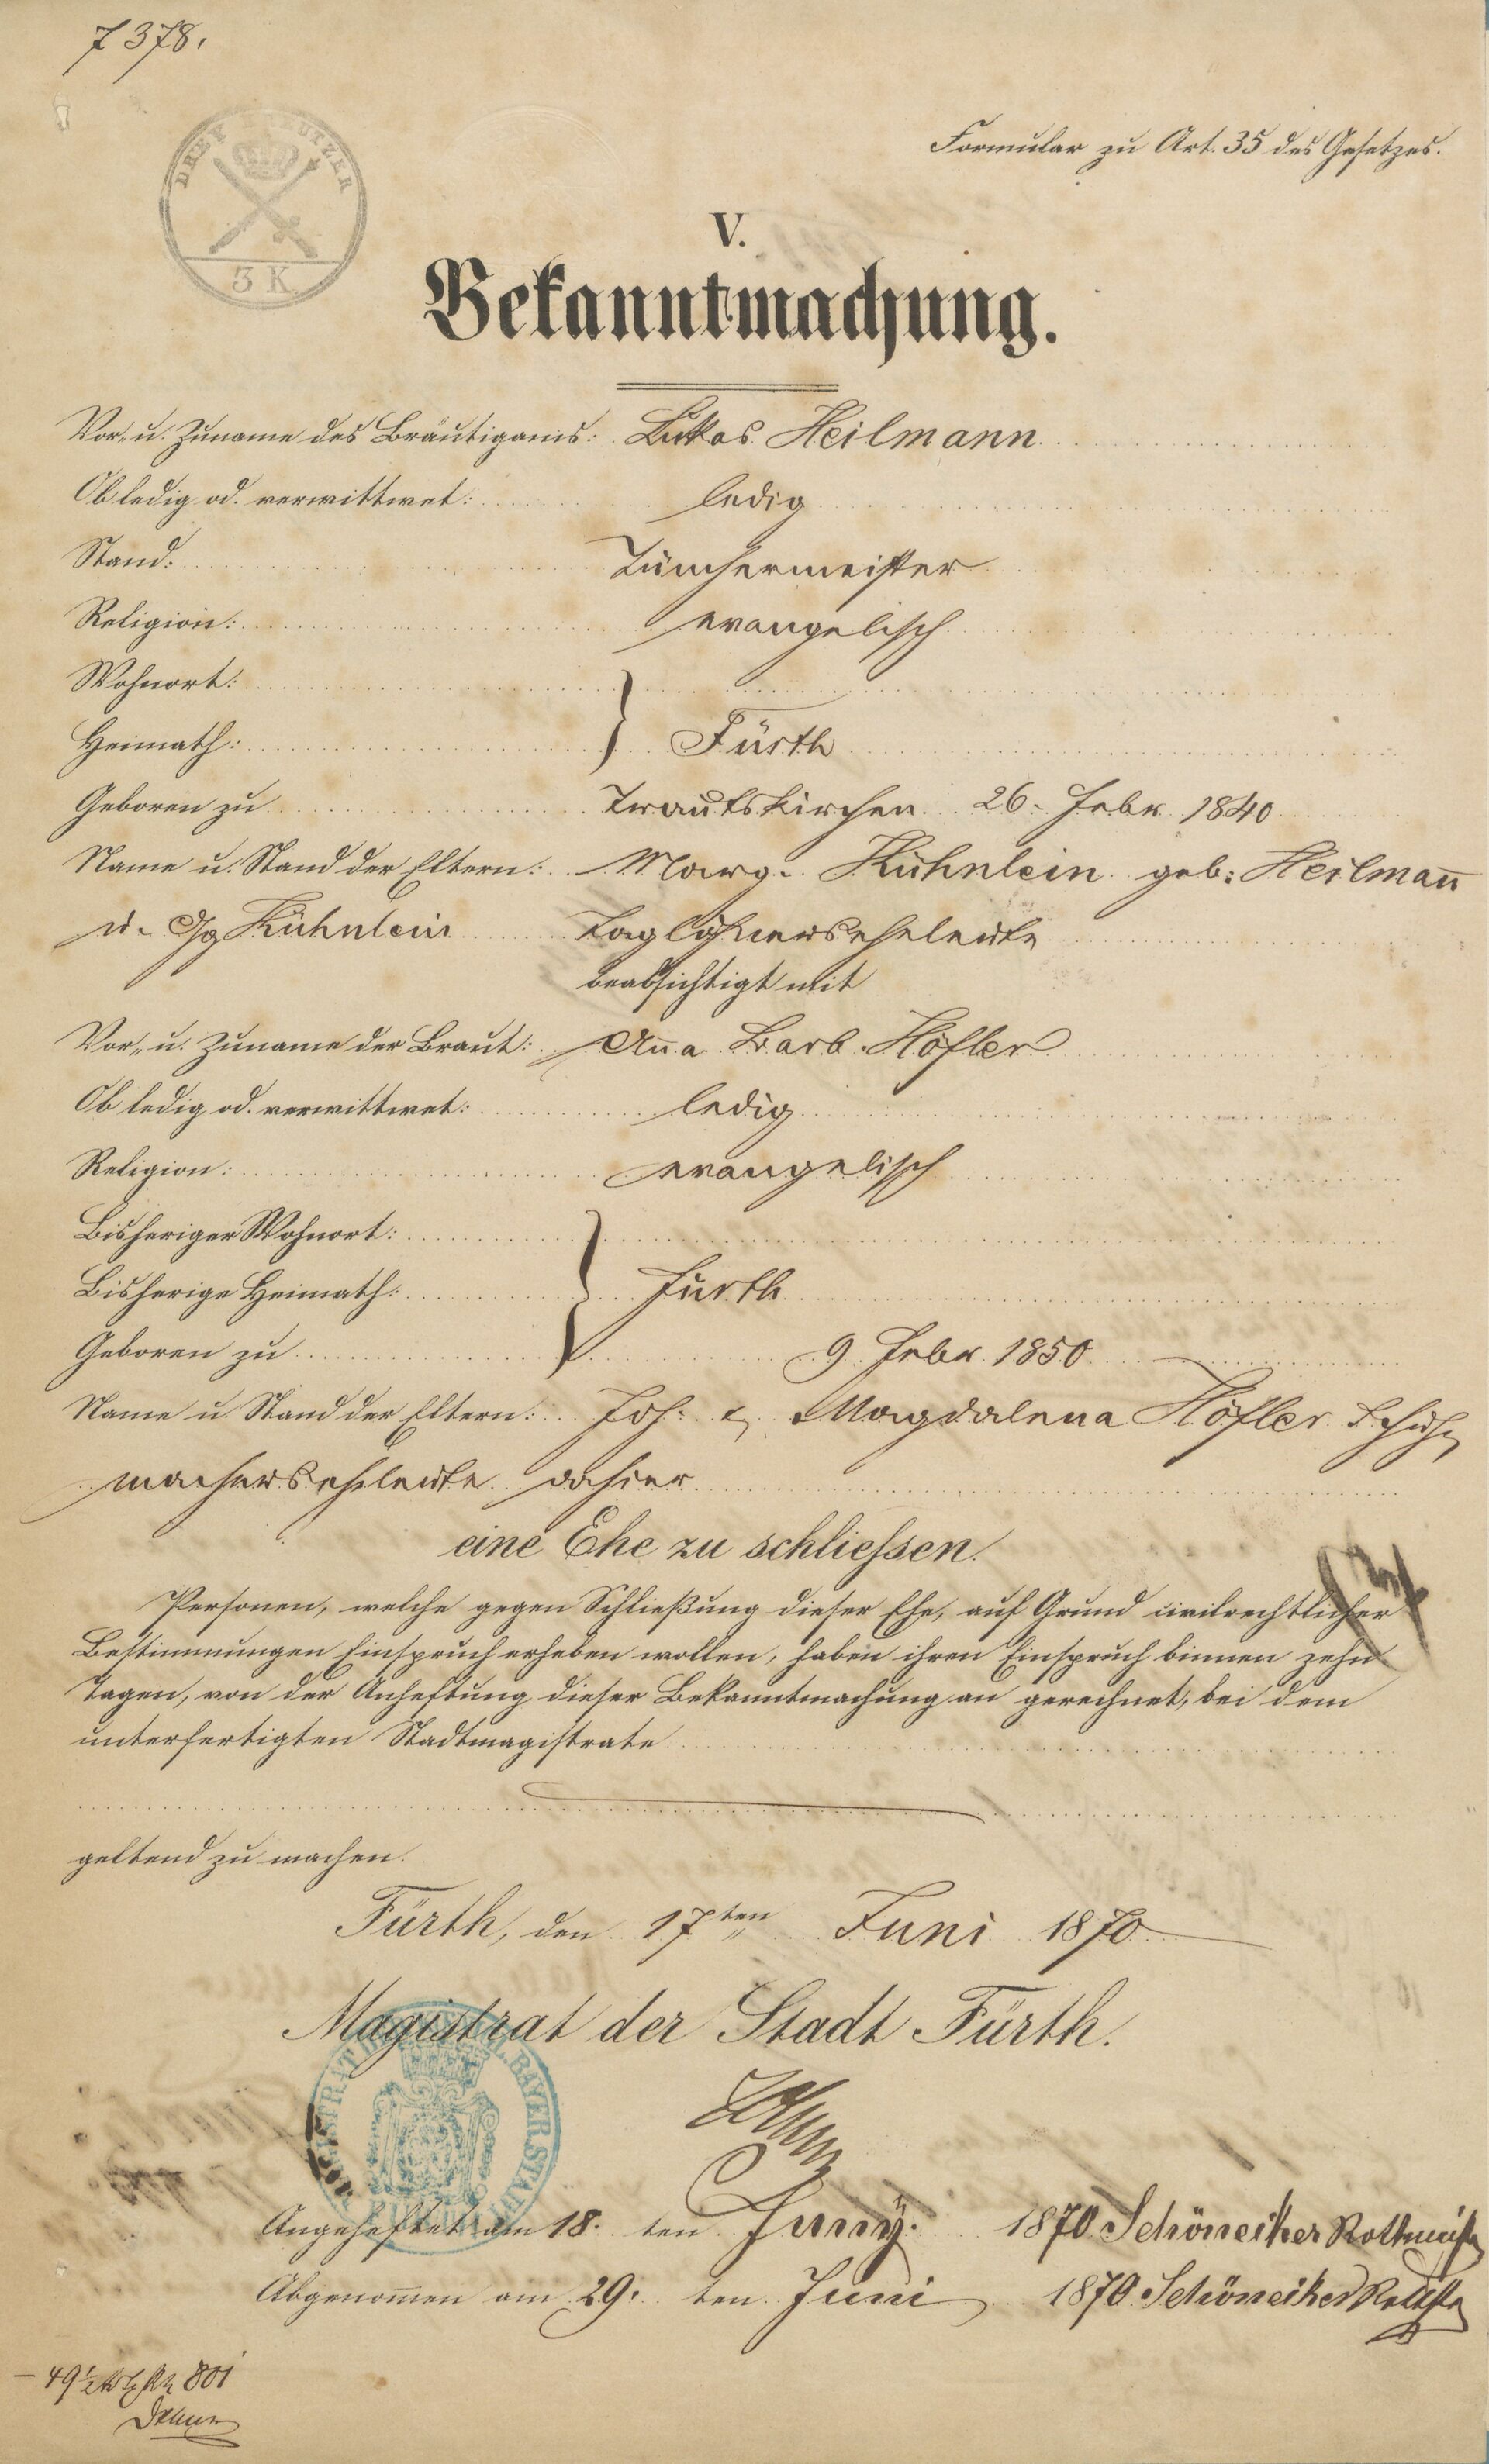 7378.
DREY KREUTZER
3 K
Formular zu Art. 35 des Gesetzes.
V.
Bekanntmachung.
Vor- u. Zuname des Bräutigams: Lukas Heilmann
Ob ledig od. verwittwet: ledig
Stand: Tünchermeister
Religion: evangelisch
Wohnort:
Heimath: Fürth
Geboren zu Trautskirchen 26. Febr 1840
Name u. Stand der Eltern: Marg. Kühnlein geb: Heilmañ
u. Gg Kühnlein Taglöhnerseheleute
beabsichtigt mit
Vor- u. Zuname der Braut: Año Barb. Höfler
Ob ledig od. verwittwet: ledig
Religion: evangelisch
Bisheriger Wohnort:
Bisherige Heimath: Fürth
Geboren zu 9. Febr. 1850
Name u. Stand der Eltern: Joh. & Magdalena Höfler Schuh-
macherseheleute dahier
eine Ehe zu schliessen.
Personen, welche gegen Schließung dieser Ehe, auf Grund civilrechtlicher
Bestimmungen Einspruch erheben wollen, haben ihren Einspruch binnen zehn
Tagen, von der Anheftung dieser Bekanntmachung an gerechnet, bei dem
unterfertigten Stadtmagistrate
geltend zu machen.
Fürth, den 17ten Juni 1870
Magistrat der Stadt Fürth.
Angeheftet am 18. ten Juny. 1870 Schöneiker Rottmeister
Abgenom̄en am 29. ten Juni 1870. Schöneiker